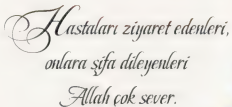 Hastaları ziyaret edenleri,
onlara şifa dileyenleri
Allah çok sever.